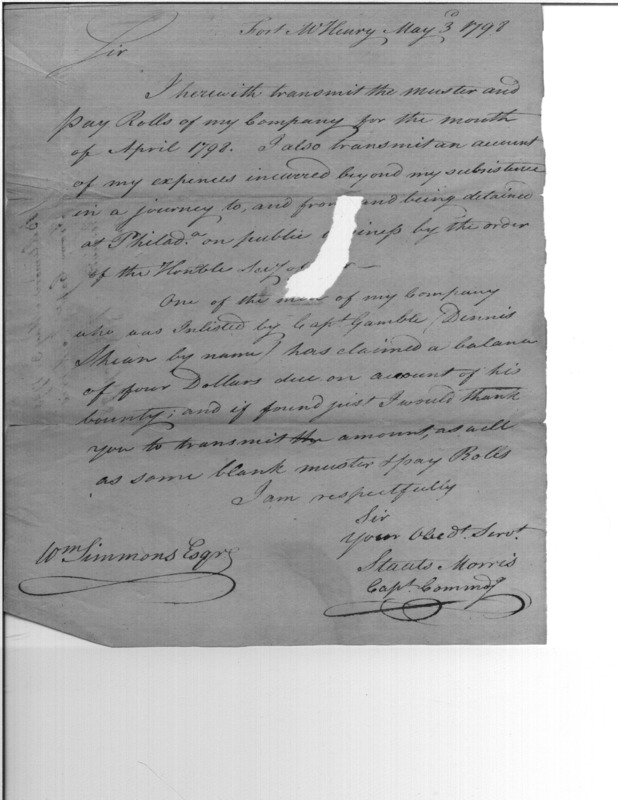 Fort McHenry May 3d 1798
Sir
I herewith transmit the muster and
Pay Rolls of my Company for the month
of April 1798. I also transmit an account
of my expences incurred beyond my subsistence
in a journey to, and from and being detained
at Philada. on public business by the order
of the Honble Secy of
One of the men of my Company
who was Inlisted by Capt Gamble (Dennis
Shean by name) has claimed a balance
of four Dollars due on account of his
bounty; and if found just I would thank
you to transmit the amount, as well
as some blank muster & pay Rolls
I am respectfully
Sir
Your Obedt. Servt.
Staats Morris
Capt. Commdg
Wm Simmons Esqre